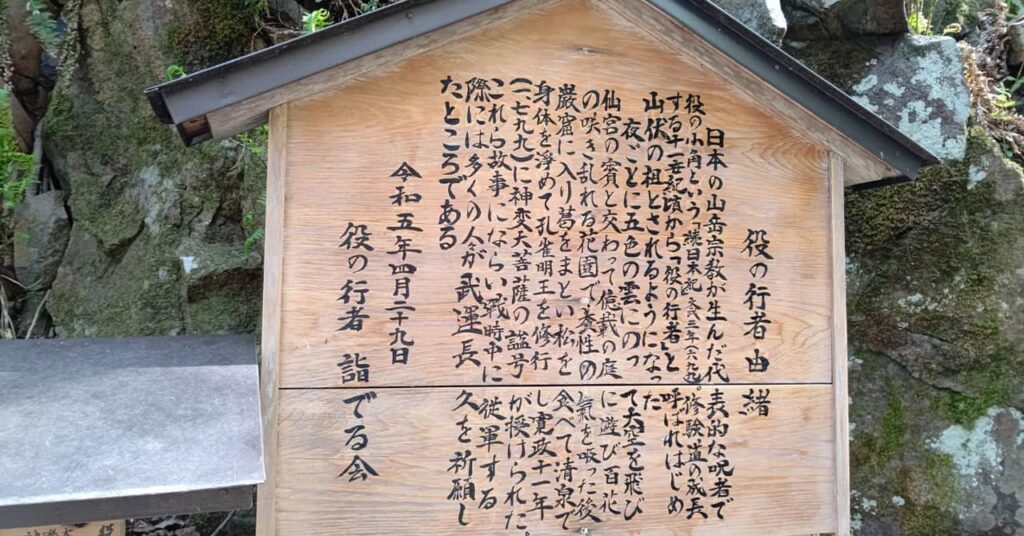 役の行者由緒
日本の山岳宗教が生んだ代表的な呪者で
役の小角という 続日本紀 文武三年(六九九)。修験道の成長
する十一世紀頃から「役の行者」と呼ばれはじめ
山伏の祖とされるようになった
夜ごとに五色の雲にのって大空を飛び
仙宮の賓と交わって億載の庭に遊び百花
の咲き乱れる花園で養性の氣を吸った後
巌窟に入り葛をまとい松を食べて清泉で
身体を浄めて孔雀明王を修行し寛政十一年
(一七九九)に神変大菩薩の諡号が授けられた。
これら故事にならい戦時中に従軍する
際には多くの人が武運長久を祈願し
たところである
令和五年四月二十九日
役の行者 詣でる会